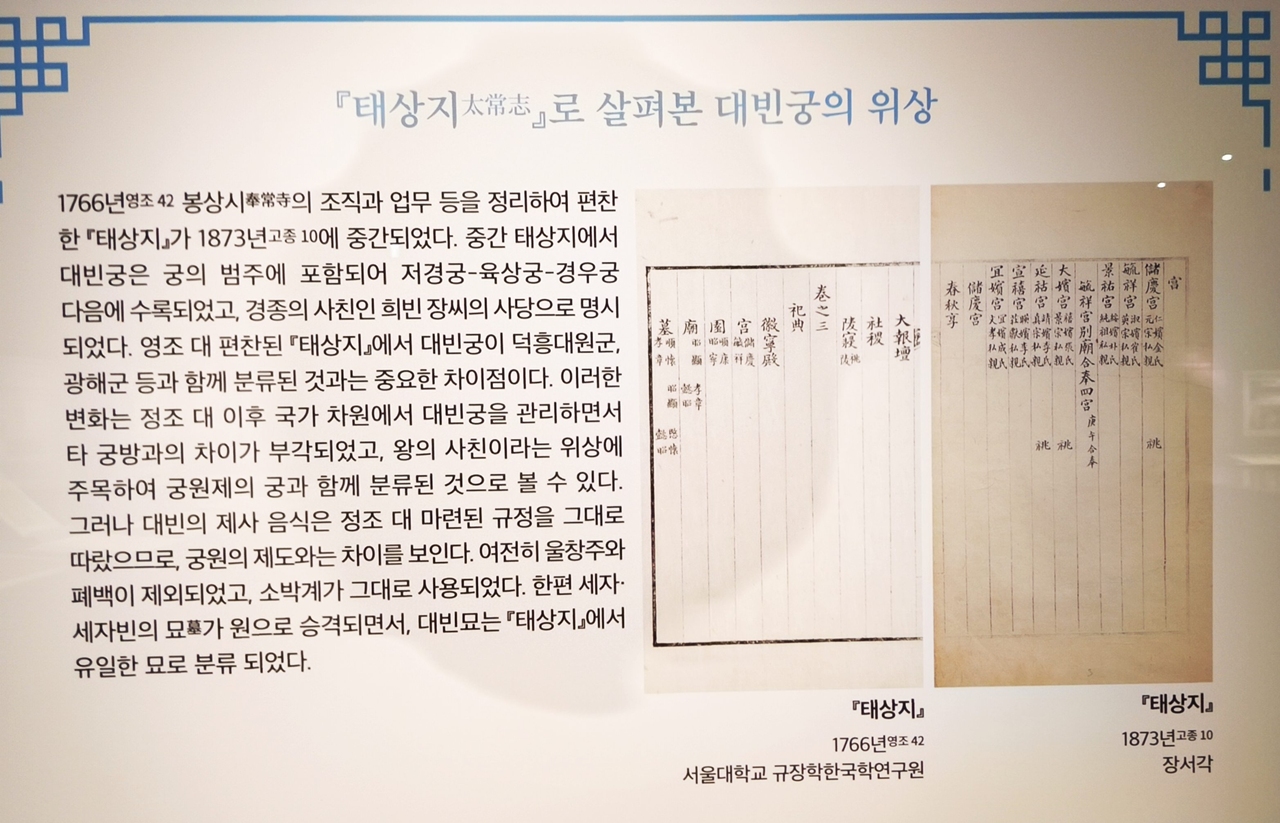 『태상지太常志』로 살펴본 대빈궁의 위상
1766년영조 42 봉상시奉常寺의 조직과 업무 등을 정리하여 편찬
한 『태상지』가 1873년고종 10에 중간되었다. 중간 태상지에서
대빈궁은 궁의 범주에 포함되어 저경궁-육상궁-경우궁
다음에 수록되었고, 경종의 사친인 희빈 장씨의 사당으로 명시
되었다. 영조 대 편찬된 『태상지』에서 대빈궁이 덕흥대원군,
광해군 등과 함께 분류된 것과는 중요한 차이점이다. 이러한
변화는 정조 대 이후 국가 차원에서 대빈궁을 관리하면서
타 궁방과의 차이가 부각되었고, 왕의 사친이라는 위상에
주목하여 궁원제의 궁과 함께 분류된 것으로 볼 수 있다.
그러나 대빈의 제사 음식은 정조 대 마련된 규정을 그대로
따랐으므로, 궁원의 제도와는 차이를 보인다. 여전히 울창주와
폐백이 제외되었고, 소박계가 그대로 사용되었다. 한편 세자·
세자빈의 묘墓가 원으로 승격되면서, 대빈묘는 『태상지』에서
유일한 묘로 분류 되었다.
大報壇
社稷
陵寢 祧陵
卷之三
祀典
徽寧殿
宮 儲慶 毓祥
園 順康 昭寧
廟 昭顯 孝章 懿昭
墓 順懷 孝章 昭顯 愍懷 懿昭
『태상지』
1766년영조 42
서울대학교 규장학한국학연구원
宮
儲慶宮 仁嬪金氏 元宗私親 祧
毓祥宮 淑嬪崔氏 英宗私親
景祐宮 綏嬪朴氏 純祖私親
毓祥宮別廟合奉四宮 庚午合奉
大嬪宮 禧嬪張氏 景宗私親 祧
延祜宮 靖嬪李氏 真宗私親 祧
宣禧宮 暎嬪李氏 莊獻私親
宜嬪宮 宜嬪成氏 文孝私親
儲慶宮
春秋享
『태상지』
1873년고종 10
장서각